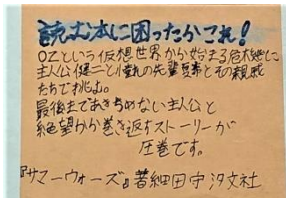 読む本に困ったらこれ!
OZという仮想世界から始まる危機に
主人公健二と憧れの先輩夏希とその親戚
たちで挑む。
最後まであきらめない主人公と
絶望から巻き返すストーリーが
圧巻です。
『サマーウォーズ』著細田守 汐文社